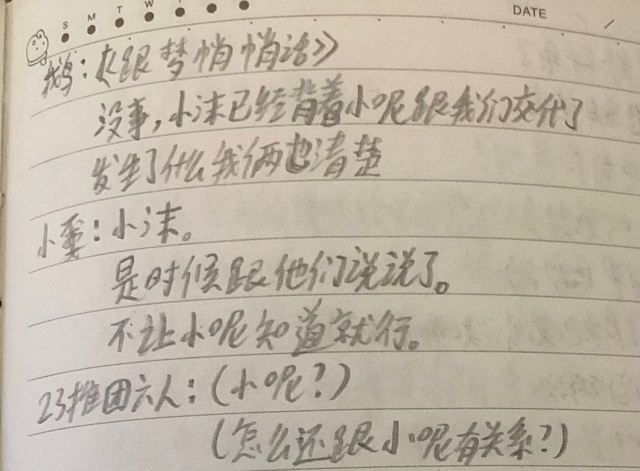 S M T W DATE /
鹅:《跟梦悄悄话》
没事,小沫已经背着小呢跟我们交代了
发生了什么我俩也清楚
小蛋:小沫。
是时候跟他们说说了。
不让小呢知道就行。
23推团六人:(小呢?)
(怎么还跟小呢有关系?)